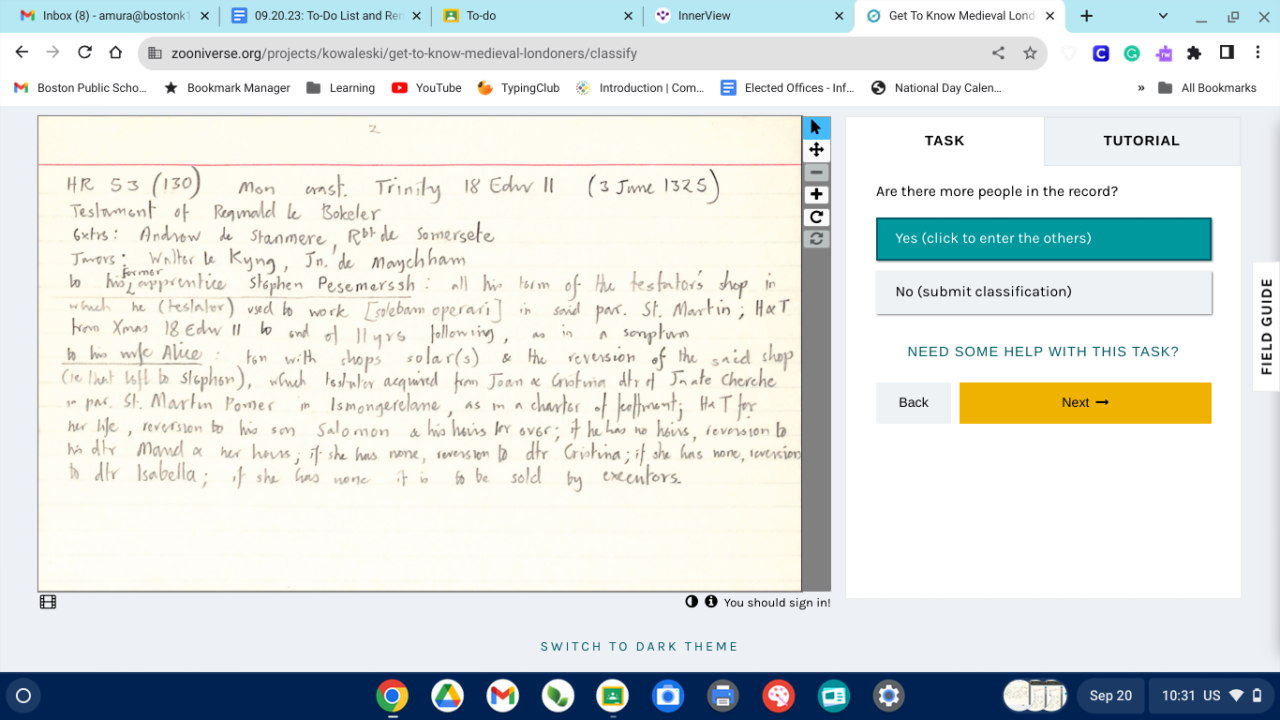 Inbox (8) - amura@bostonk1
09.20.23: To-Do List and Rem
To-do
InnerView
Get To Know Medieval Lond
zooniverse.org/projects/kowaleski/get-to-know-medieval-londoners/classify
Boston Public Scho...
Bookmark Manager
Learning
YouTube
TypingClub
Introduction | Com...
Elected Offices - Inf...
National Day Calen...
»
All Bookmarks
2
HR 53 (130) Mon crast. Trinity 18 Edw II (3 June 1325)
Testament of Reginald le Bokeler
Extrs: Andrew de Stanmere, Rbt de Somersete
Jurors: Walter le Kyng, Jn. de Maychham
former
to his apprentice Stephen Pesemerssh: all his term of the testator's shop in
which he (testator) used to work [solebam operari] in said par. St. Martin; H&T
from Xmas 18 Edw II to end of 11 yrs following, as in a scriptum
to his wife Alice: ten with shops solar(s) & the reversion of the said shop
(ie that left to Stephen), which testator acquired from Joan & Cristina dtr of Jn atte Cherche
in par. St. Martin Pomer in Ismongerelane, as in a charter of feoffment; H&T for
her life, reversion to his son Salomon & his heirs for ever; if he has no heirs, reversion to
his dtr Maud & her heirs; if she has none, reversion to dtr Cristina; if she has none, reversion
to dtr Isabella; if she has none it is to be sold by executors.
You should sign in!
SWITCH TO DARK THEME
TASK
TUTORIAL
Are there more people in the record?
Yes (click to enter the others)
No (submit classification)
NEED SOME HELP WITH THIS TASK?
Back
Next →
FIELD GUIDE
Sep 20
10:31 US